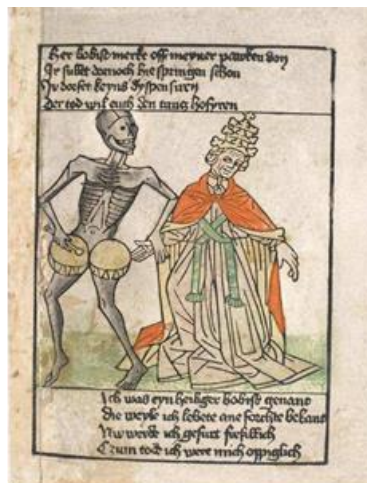 Her bobist merkt off meyner pawken don
Ir sullet dornoch hie springen schon
dorfet keyns dyspensiren
Der tod wil euch den tancz hofyren
Ich was eyn heiliger bobist genant
Die weyle ich lebete ane forchte bekant
Nw werde ich gefurt frefillich
Czum tod ich were mich oppiglich